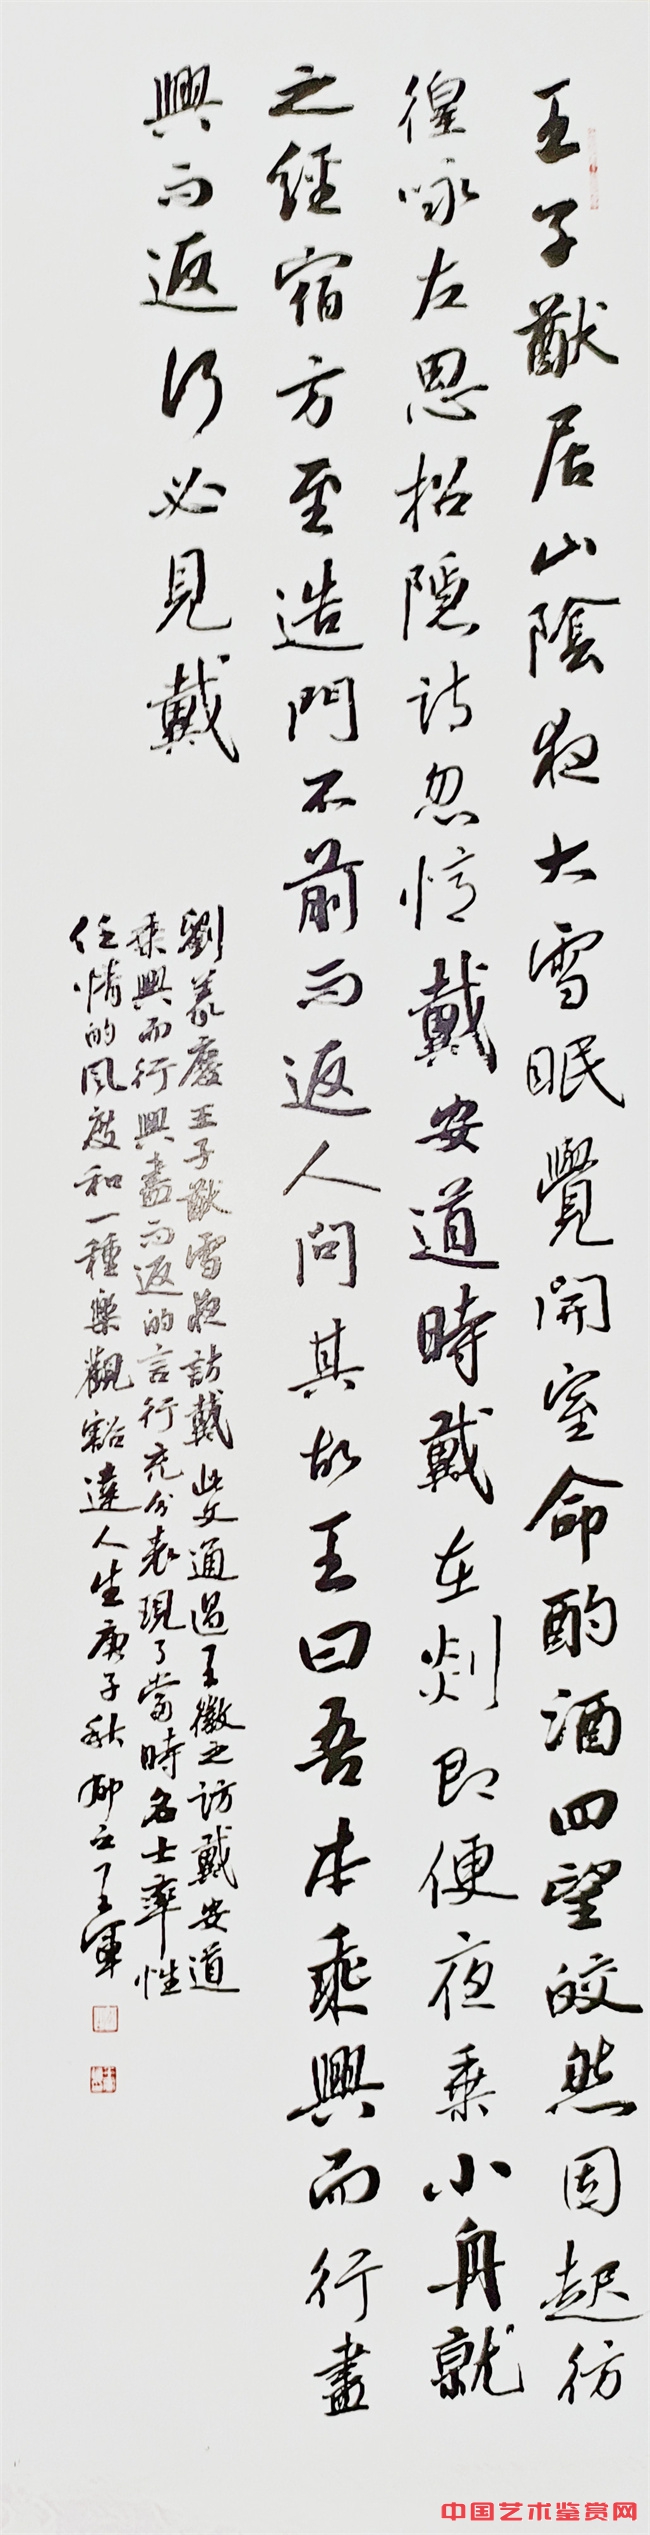 王子猷居山陰夜大雪眠覺開室命酌酒四望皎然因起彷
徨咏左思招隱詩忽憶戴安道時戴在剡即便夜乘小舟就
之經宿方至造門不前而返人問其故王曰吾本乘興而行盡
興而返何必見戴
劉義慶王子猷雪夜訪戴此文通過王徽之訪戴安道
乘興而行興盡而返的言行充分表現了當時名士率性
任情的风度和一種樂觀豁達人生庚子秋王軍
中国艺术鉴赏网